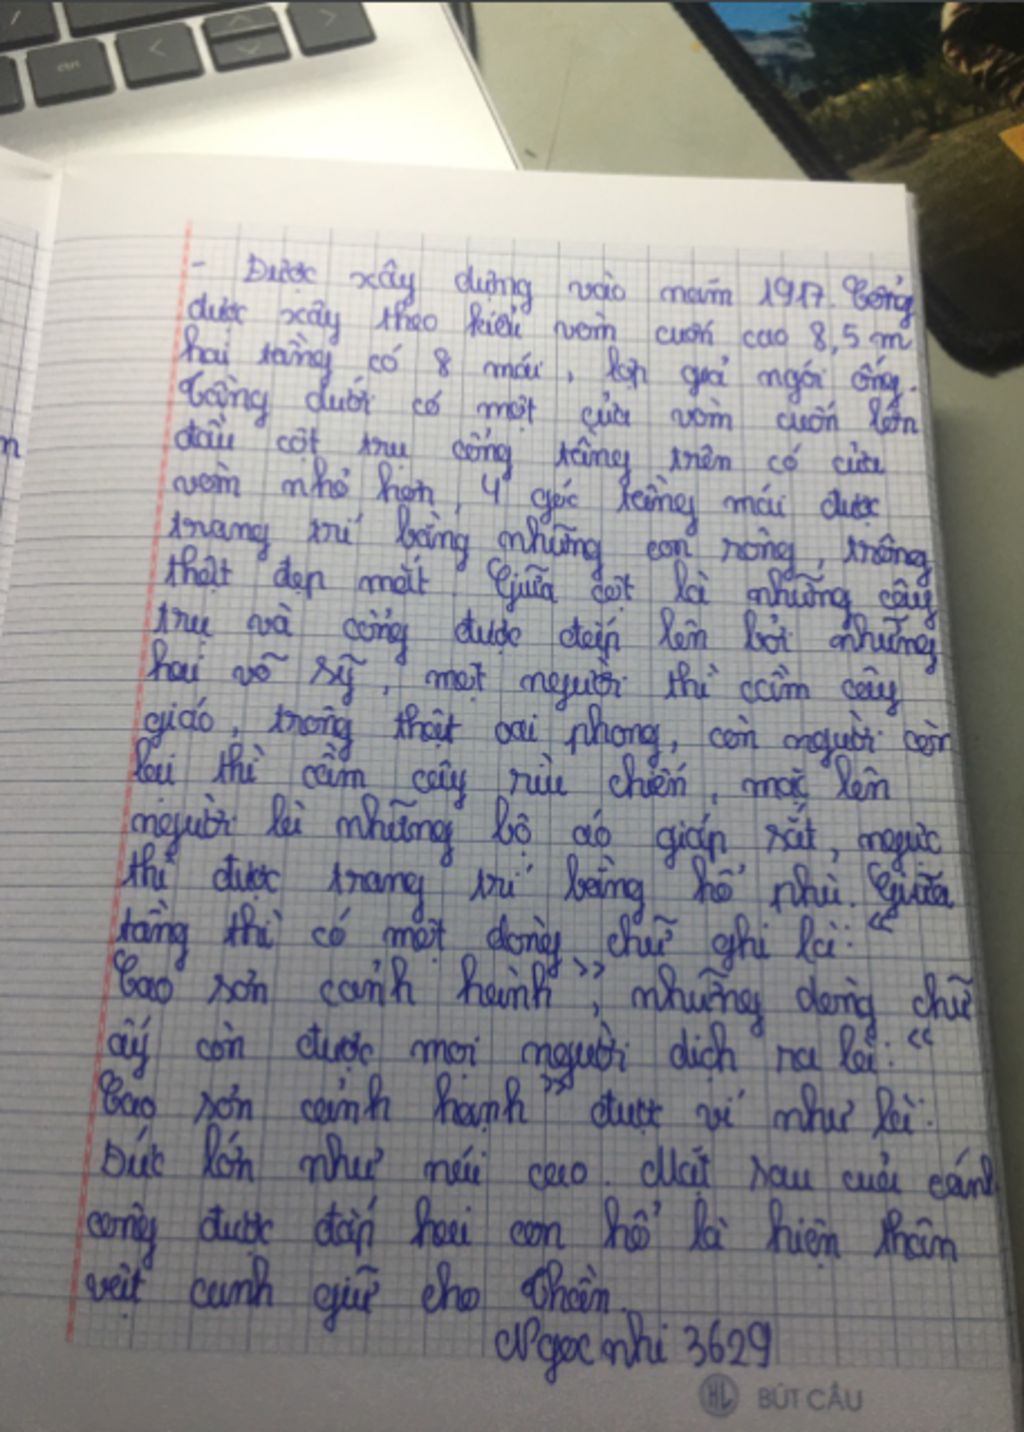 - Được xây dựng vào năm 1917. Cổng
được xây theo kiểu vòm cuốn cao 8,5 m
hai tầng có 8 mái, lợp giả ngói ống.
Tầng dưới có một cửa vòm cuốn lớn
đầu cột trụ cổng tầng trên có cửa
vòm nhỏ hơn, 4 góc tầng mái được
trang trí bằng những con rồng, trông
thật đẹp mắt. Giữa cột là những cây
trụ và cổng được đắp lên bởi những
hai võ sỹ, một người thì cầm cây
giáo, trông thật oai phong, còn người còn
lại thì cầm cây rìu chiến, mặc lên
người là những bộ áo giáp sắt, ngực
thì được trang trí bằng hổ phù. Giữa
tầng thì có một dòng chữ ghi là: "
Cao sơn cảnh hành", những dòng chữ
ấy còn được mọi người dịch ra là: "
Cao sơn cảnh hạnh" được ví như là:
Đức lớn như núi cao. Mặt sau của cánh
cổng được đắp hai con hổ là hiện thân
vật canh giữ cho Thần.
Ngọc nhi 3629
HL BÚT CÂU
n
ctrl